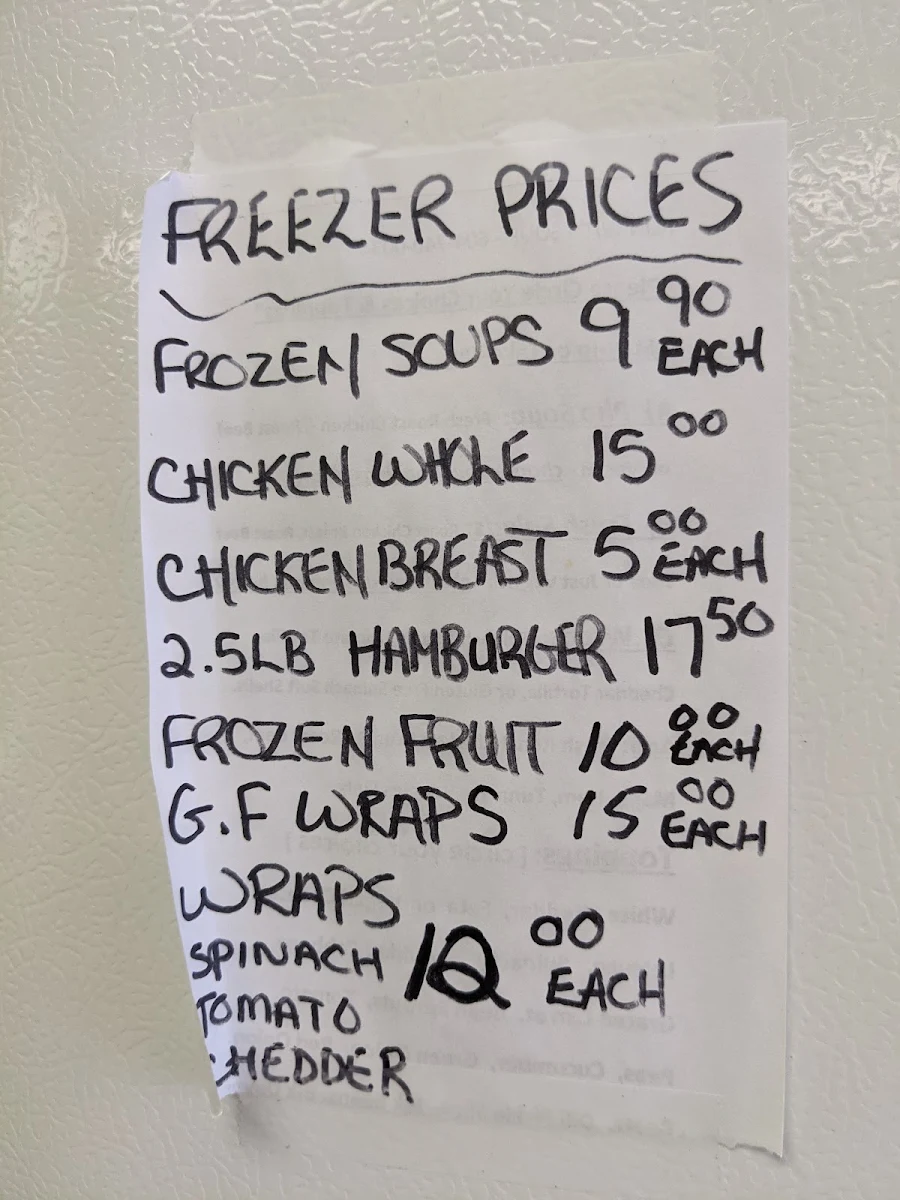 FREEZER PRICES
FROZEN SOUPS 9 90 EACH
CHICKEN WHOLE 15 00
CHICKEN BREAST 5 00 EACH
2.5LB HAMBURGER 17 50
FROZEN FRUIT 10 00 EACH
G.F WRAPS 15 00 EACH
WRAPS
SPINACH 00 EACH
TOMATO
CHEDDER